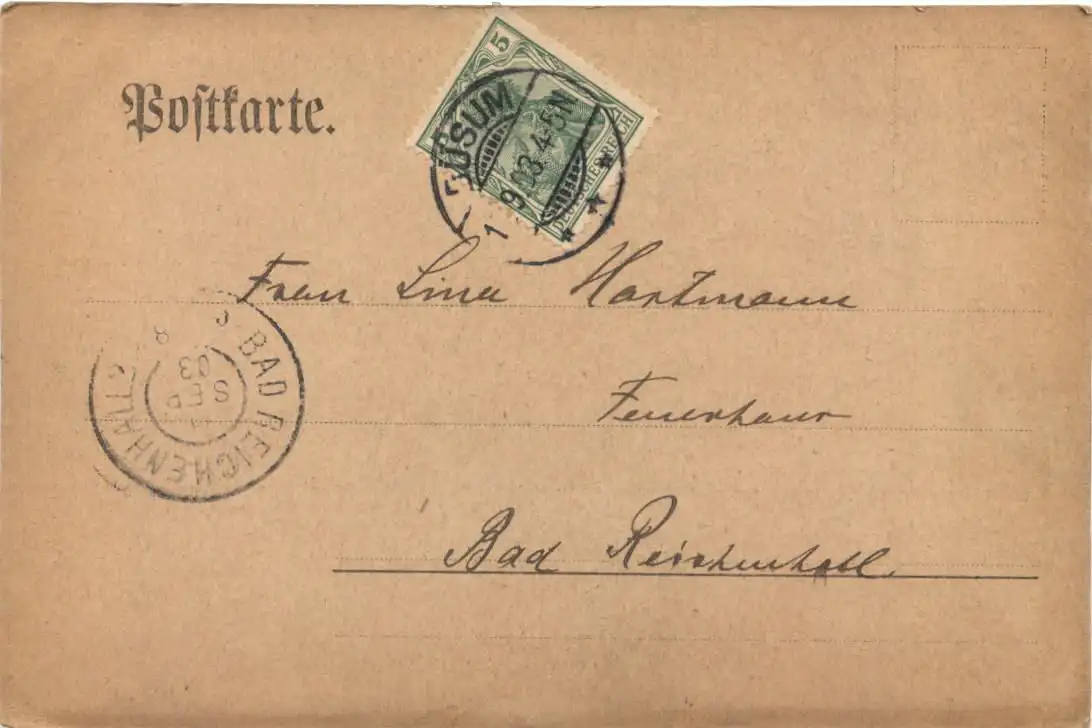 Postkarte.
5
DEUTSCHES REICH
BÜSUM
1 9 03 4-5N
Frau Lina Hartmann
Feuerhaus
Bad Reichenhall.
BAD REICHENHALL 2
SEP
03
8